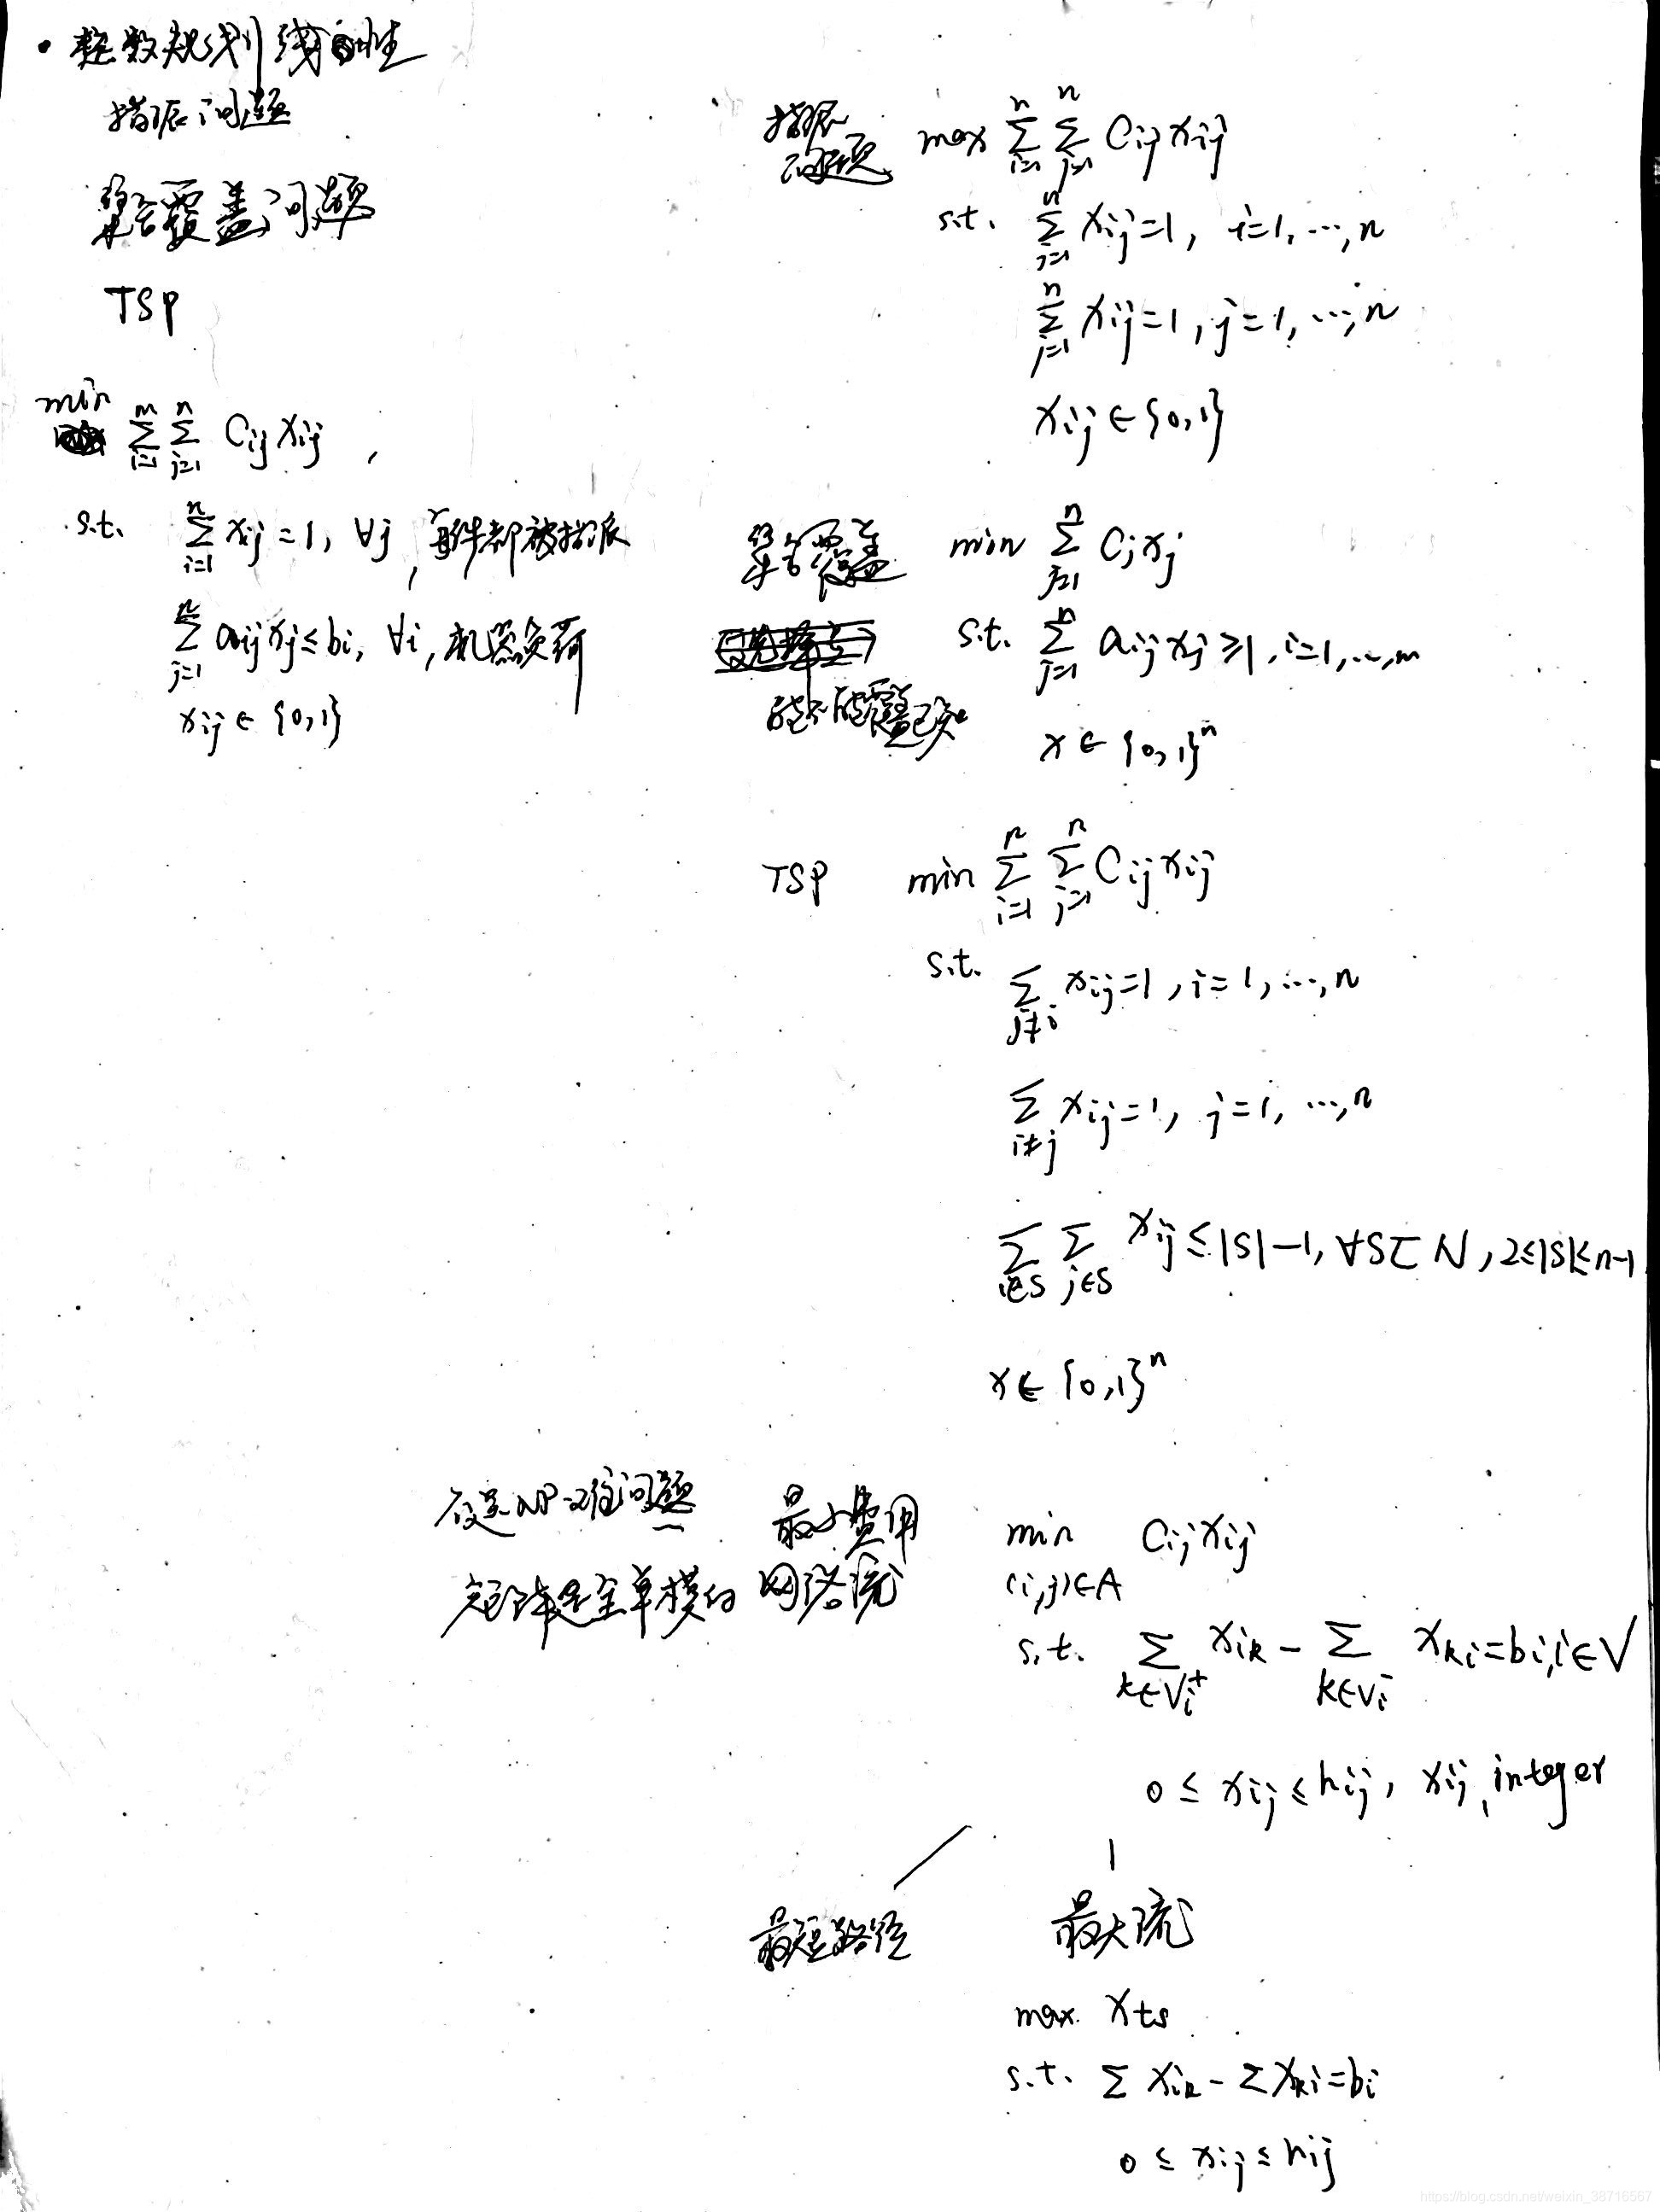 • 整数规划线性
指派问题
集合覆盖问题
TSP
min ∑_{i=1}^{m} ∑_{j=1}^{n} C_{ij} x_{ij} ,
s.t. ∑_{i=1}^{n} x_{ij} = 1, ∀j, 每件都被指派
∑_{j=1}^{n} a_{ij} x_j ≤ b_i, ∀i, 机器负荷
x_{ij} ∈ {0,1}
指派问题 max ∑_{i=1}^{n} ∑_{j=1}^{n} C_{ij} x_{ij}
s.t. ∑_{j=1}^{n} x_{ij} = 1, i=1, ..., n
∑_{j=1}^{n} x_{ij} = 1, j=1, ..., n
x_{ij} ∈ {0,1}
集合覆盖 min ∑_{j=1}^{n} C_j x_j
s.t. ∑_{j=1}^{n} a_{ij} x_j ≥ 1, i=1, ..., m
能不能覆盖已知
x ∈ {0,1}^n
TSP min ∑_{i=1}^{n} ∑_{j=1}^{n} C_{ij} x_{ij}
s.t. ∑_{j≠i} x_{ij} = 1, i=1, ..., n
∑_{i≠j} x_{ij} = 1, j=1, ..., n
∑_{i∈S} ∑_{j∈S} x_{ij} ≤ |S|-1, ∀S⊂N, 2≤|S|≤n-1
x ∈ {0,1}^n
NP-难问题
矩阵是全单模的
最小费用网络流 min_{(i,j)∈A} C_{ij} x_{ij}
s.t. ∑_{k∈V_i^+} x_{ik} - ∑_{k∈V_i^-} x_{ki} = b_i, i∈V
0 ≤ x_{ij} ≤ h_{ij}, x_{ij}, integer
最短路径
最大流
max x_{ts}
s.t. ∑ x_{ik} - ∑ x_{ki} = b_i
0 ≤ x_{ij} ≤ h_{ij}
https://blog.csdn.net/weixin_38716567